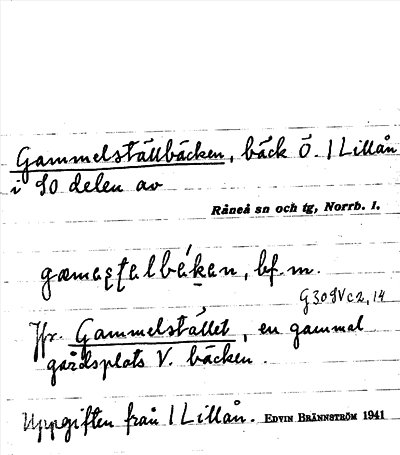 Gammelställbäcken, bäck Ö. 1 Lillån
i SO delen av
Råneå sn och tg, Norrb. l.
gamesta̧lbékan, bf. m.
G30SVc2,14
Jfr. Gammelstället, en gammal
gårdsplats V. bäcken.
Uppgiften från 1 Lillån. EDVIN BRÄNNSTRÖM 1941